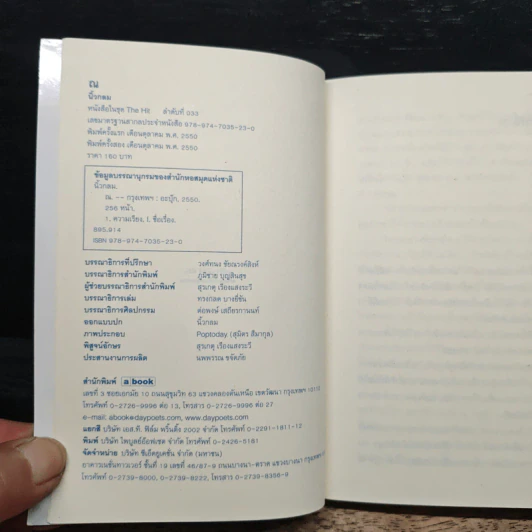 ณ
นิ้วกลม
หนังสือในชุด The Hit ลำดับที่ 033
เลขมาตรฐานสากลประจำหนังสือ 978-974-7035-23-0
พิมพ์ครั้งแรก เดือนตุลาคม พ.ศ. 2550
พิมพ์ครั้งสอง เดือนตุลาคม พ.ศ. 2550
ราคา 160 บาท
ข้อมูลบรรณานุกรมของสำนักหอสมุดแห่งชาติ
นิ้วกลม.
ณ. -- กรุงเทพฯ : อะบุ๊ก, 2550.
256 หน้า.
1. ความเรียง. I. ชื่อเรื่อง.
895.914
ISBN 978-974-7035-23-0
บรรณาธิการที่ปรึกษา วงศ์ทนง ชัยณรงค์สิงห์
บรรณาธิการสำนักพิมพ์ ภูมิชาย บุญสินสุข
ผู้ช่วยบรรณาธิการสำนักพิมพ์ สุวเกตุ เรืองแสงระวี
บรรณาธิการเล่ม ทรงกลด บางยี่ขัน
บรรณาธิการศิลปกรรม ต่อพงษ์ เสถียรกานนท์
ออกแบบปก นิ้วกลม
ภาพประกอบ Poptoday (สุมิตร สีมากุล)
พิสูจน์อักษร สุวเกตุ เรืองแสงระวี
ประสานงานการผลิต นพพรรณ ขจัดภัย
สำนักพิมพ์ a book
เลขที่ 3 ซอยเอกมัย 10 ถนนสุขุมวิท 63 แขวงคลองตันเหนือ เขตวัฒนา กรุงเทพฯ 10110
โทรศัพท์ 0-2726-9996 ต่อ 13, โทรสาร 0-2726-9996 ต่อ 27
e-mail: abook@daypoets.com, www.daypoets.com
แยกสี บริษัท เอส.ที. ฟิล์ม พริ้นติ้ง 2002 จำกัด โทรศัพท์ 0-2281-1811-12
พิมพ์ บริษัท ไพบูลย์อ๊อฟเซต จำกัด โทรศัพท์ 0-2426-5181
จัดจำหน่าย บริษัท ซีเอ็ดยูเคชั่น จำกัด (มหาชน)
อาคารเนชั่นทาวเวอร์ ชั้นที่ 19 เลขที่ 46/87-9 ถนนบางนา-ตราด แขวงบางนา
โทรศัพท์ 0-2739-8000, 0-2739-8222, โทรสาร 0-2739-8356-9